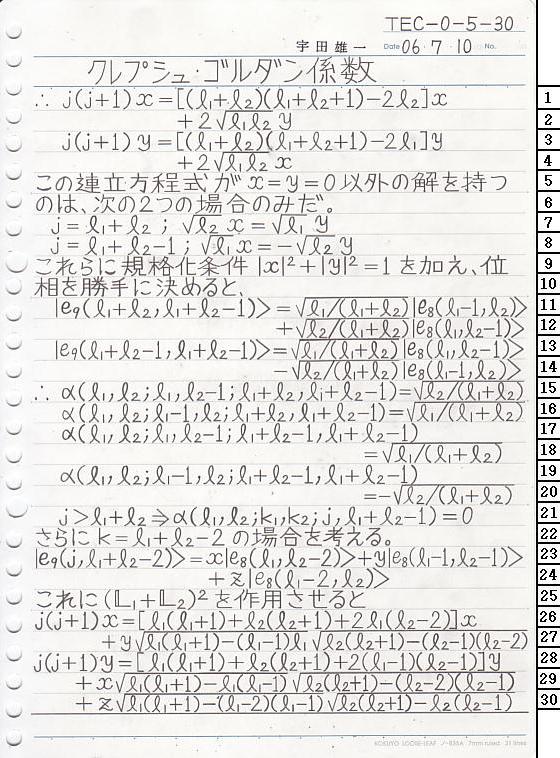 TEC-0-5-30
宇田雄一 Date 06・7・10 No.
クレプシュ・ゴルダン係数
∴ j(j+1)x=[(ℓ₁+ℓ₂)(ℓ₁+ℓ₂+1)-2ℓ₂]x 1
+2√ℓ₁ℓ₂ y 2
j(j+1)y=[(ℓ₁+ℓ₂)(ℓ₁+ℓ₂+1)-2ℓ₁]y 3
+2√ℓ₁ℓ₂ x 4
この連立方程式がx=y=0以外の解を持つ 5
のは、次の2つの場合のみだ。 6
j=ℓ₁+ℓ₂ ; √ℓ₂ x=√ℓ₁ y 7
j=ℓ₁+ℓ₂-1 ; √ℓ₁ x=-√ℓ₂ y 8
これらに規格化条件 |x|²+|y|²=1 を加え、位 9
相を勝手に決めると、 10
|e₉(ℓ₁+ℓ₂,ℓ₁+ℓ₂-1)>=√ℓ₁/(ℓ₁+ℓ₂)|e₈(ℓ₁-1,ℓ₂)> 11
+√ℓ₂/(ℓ₁+ℓ₂)|e₈(ℓ₁,ℓ₂-1)> 12
|e₉(ℓ₁+ℓ₂-1,ℓ₁+ℓ₂-1)>=√ℓ₁/(ℓ₁+ℓ₂)|e₈(ℓ₁,ℓ₂-1)> 13
-√ℓ₂/(ℓ₁+ℓ₂)|e₈(ℓ₁-1,ℓ₂)> 14
∴ α(ℓ₁,ℓ₂;ℓ₁,ℓ₂-1;ℓ₁+ℓ₂,ℓ₁+ℓ₂-1)=√ℓ₂/(ℓ₁+ℓ₂) 15
α(ℓ₁,ℓ₂;ℓ₁-1,ℓ₂;ℓ₁+ℓ₂,ℓ₁+ℓ₂-1)=√ℓ₁/(ℓ₁+ℓ₂) 16
α(ℓ₁,ℓ₂;ℓ₁,ℓ₂-1;ℓ₁+ℓ₂-1,ℓ₁+ℓ₂-1) 17
=√ℓ₁/(ℓ₁+ℓ₂) 18
α(ℓ₁,ℓ₂;ℓ₁-1,ℓ₂;ℓ₁+ℓ₂-1,ℓ₁+ℓ₂-1) 19
=-√ℓ₂/(ℓ₁+ℓ₂) 20
j>ℓ₁+ℓ₂⇒α(ℓ₁,ℓ₂;k₁,k₂;j,ℓ₁+ℓ₂-1)=0 21
さらにk=ℓ₁+ℓ₂-2の場合を考える。 22
|e₉(j,ℓ₁+ℓ₂-2)>=x|e₈(ℓ₁,ℓ₂-2)>+y|e₈(ℓ₁-1,ℓ₂-1)> 23
+z|e₈(ℓ₁-2,ℓ₂)> 24
これに(𝕃₁+𝕃₂)²を作用させると 25
j(j+1)x=[ℓ₁(ℓ₁+1)+ℓ₂(ℓ₂+1)+2ℓ₁(ℓ₂-2)]x 26
+y√ℓ₁(ℓ₁+1)-(ℓ₁-1)ℓ₁ √ℓ₂(ℓ₂+1)-(ℓ₂-1)(ℓ₂-2) 27
j(j+1)y=[ℓ₁(ℓ₁+1)+ℓ₂(ℓ₂+1)+2(ℓ₁-1)(ℓ₂-1)]y 28
+x√ℓ₁(ℓ₁+1)-ℓ₁(ℓ₁-1) √ℓ₂(ℓ₂+1)-(ℓ₂-2)(ℓ₂-1) 29
+z√ℓ₁(ℓ₁+1)-(ℓ₁-2)(ℓ₁-1) √ℓ₂(ℓ₂+1)-ℓ₂(ℓ₂-1) 30
KOKUYO LOOSE-LEAF ノ-836A 7mm ruled 31 lines